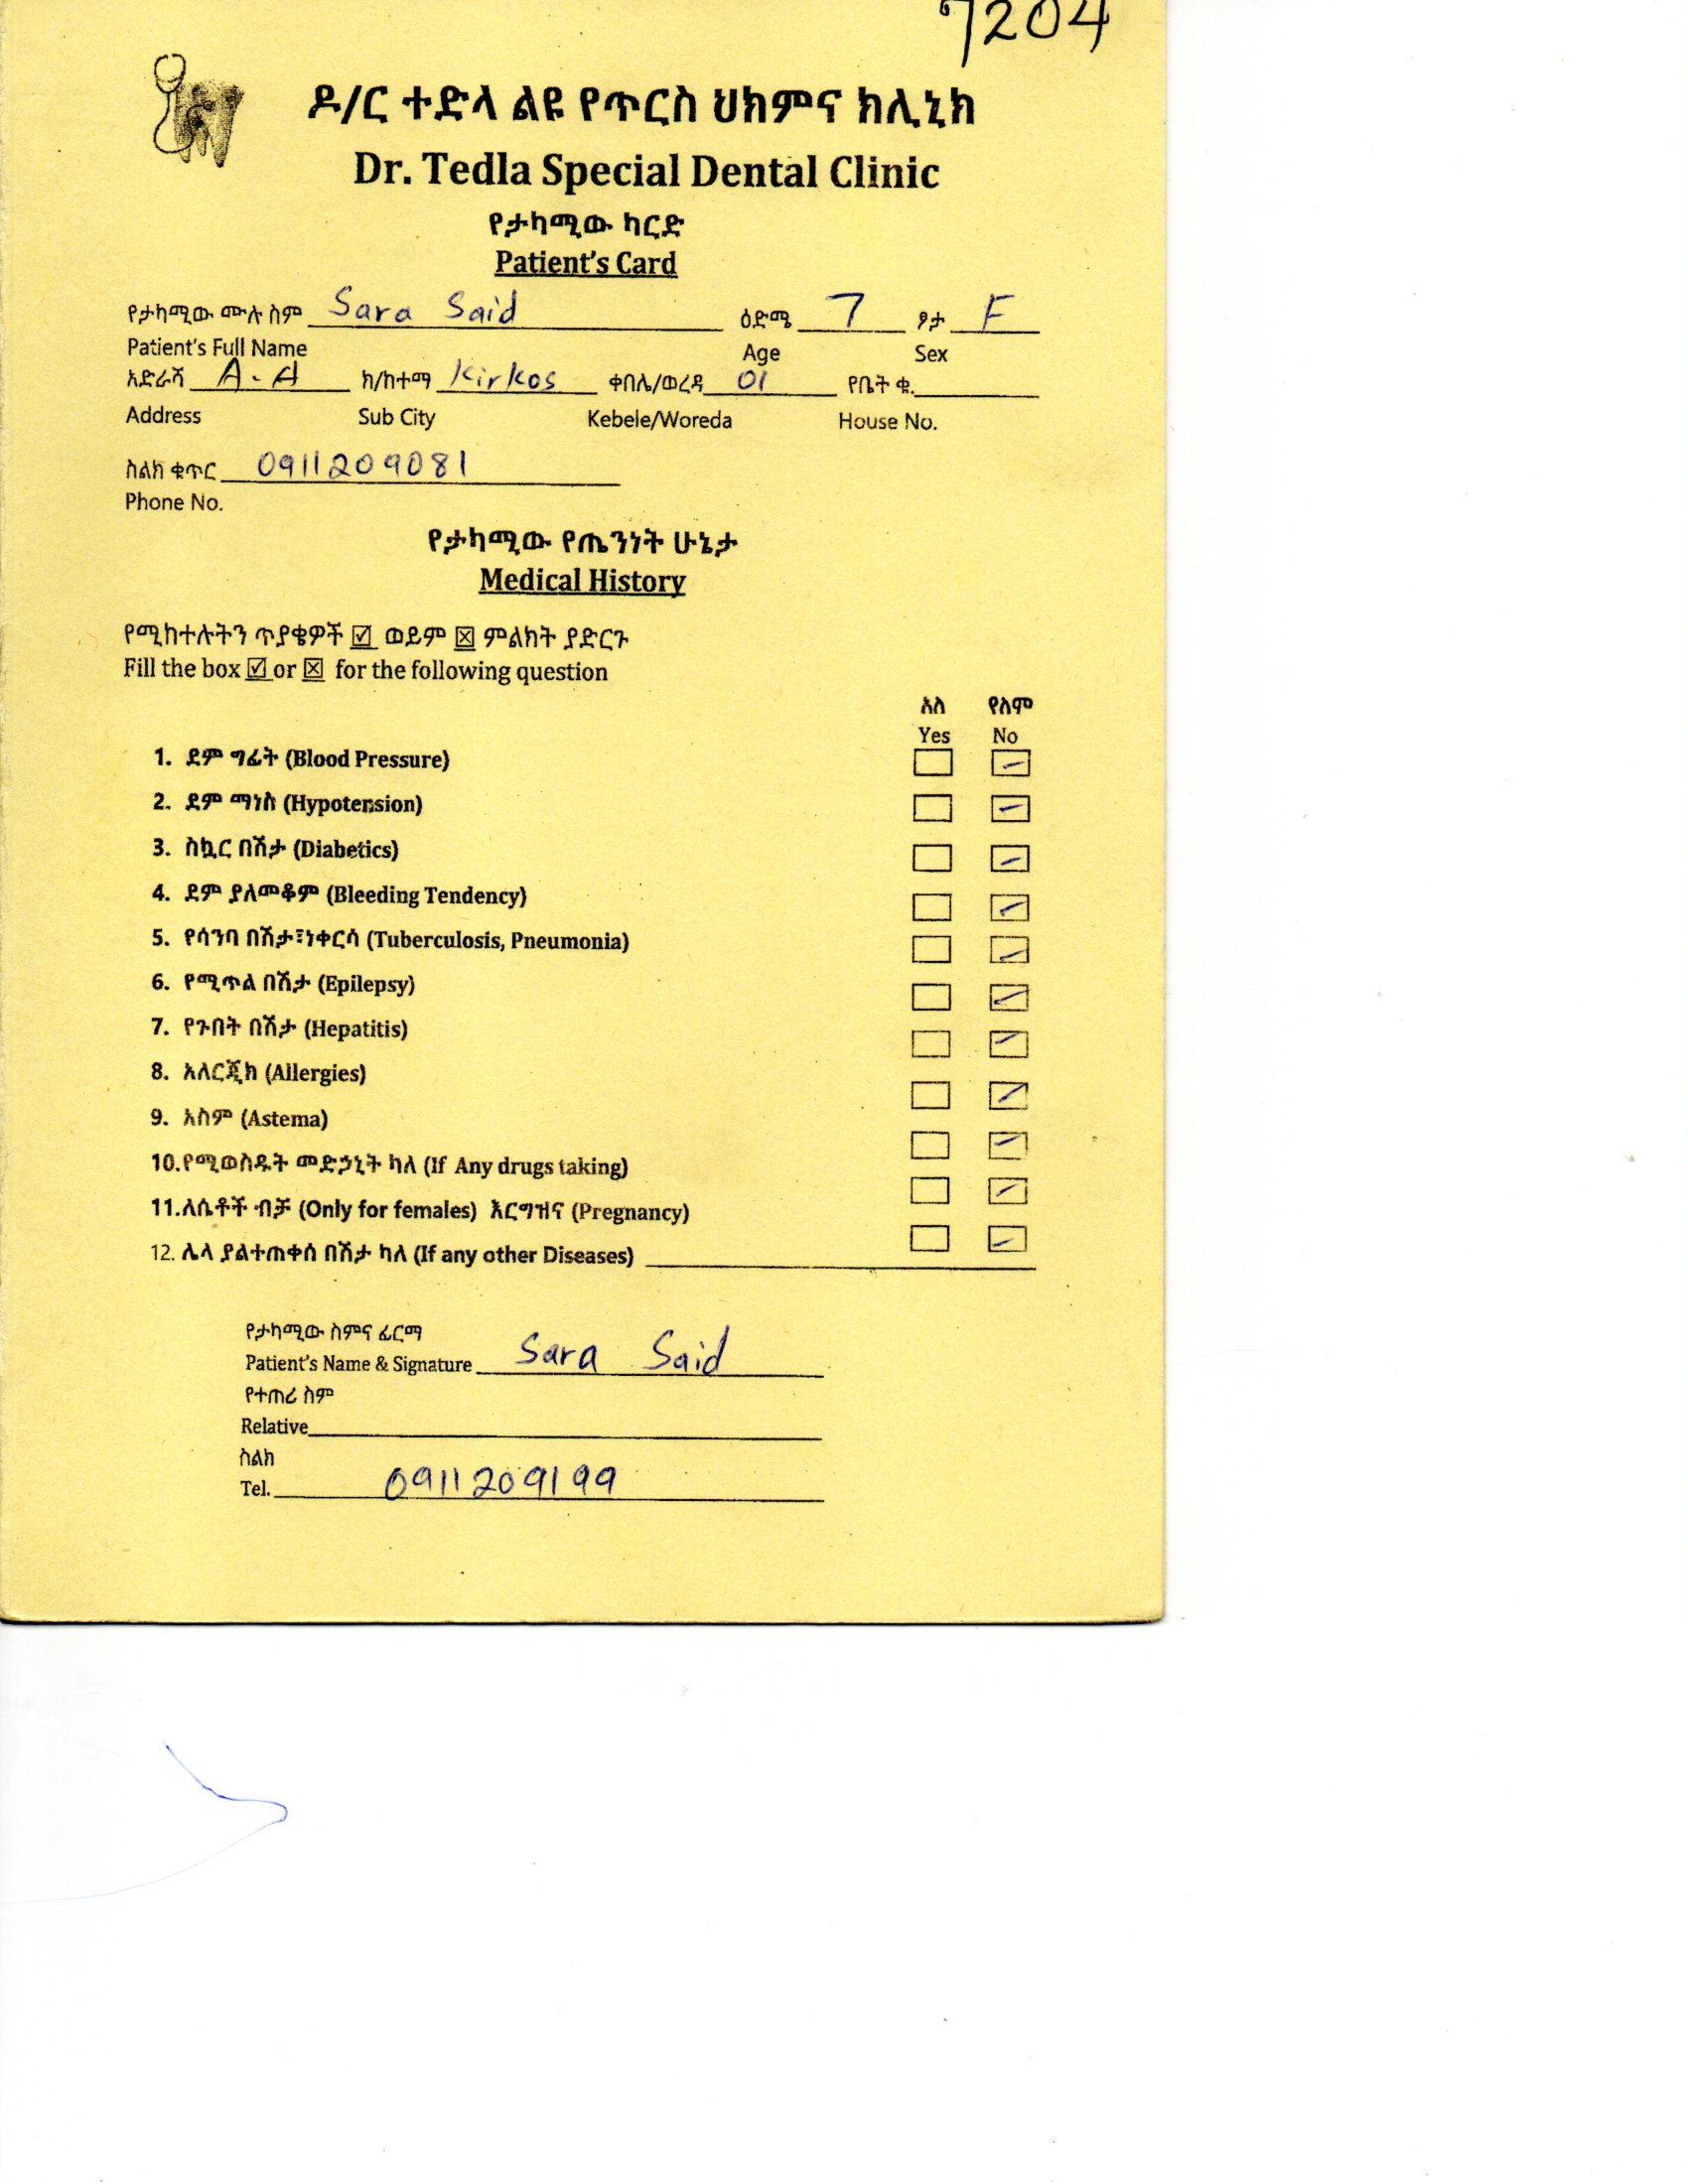 7204
ዶ/ር ተድላ ልዩ የጥርስ ህክምና ክሊኒክ
Dr. Tedla Special Dental Clinic
የታካሚው ካርድ
Patient's Card
የታካሚው ሙሉ ስም Sara Said ዕድሜ 7 ፆታ F
Patient's Full Name Age Sex
አድራሻ A.A ክ/ከተማ Kirkos ቀበሌ/ወረዳ 01 የቤት ቁ.
Address Sub City Kebele/Woreda House No.
ስልክ ቁጥር 0911209081
Phone No.
የታካሚው የጤንነት ሁኔታ
Medical History
የሚከተሉትን ጥያቄዎች ☑ ወይም ☒ ምልክት ያድርጉ
Fill the box ☑ or ☒ for the following question
አለ የለም
Yes No
1. ደም ግፊት (Blood Pressure)
2. ደም ማነስ (Hypotension)
3. ስኳር በሽታ (Diabetics)
4. ደም ያለመቆም (Bleeding Tendency)
5. የሳንባ በሽታ፣ነቀርሳ (Tuberculosis, Pneumonia)
6. የሚጥል በሽታ (Epilepsy)
7. የጉበት በሽታ (Hepatitis)
8. አለርጂክ (Allergies)
9. አስም (Astema)
10.የሚወስዱት መድኃኒት ካለ (If Any drugs taking)
11.ለሴቶች ብቻ (Only for females) እርግዝና (Pregnancy)
12. ሌላ ያልተጠቀሰ በሽታ ካለ (If any other Diseases)
የታካሚው ስምና ፊርማ
Patient's Name & Signature Sara Said
የተጠሪ ስም
Relative
ስልክ
Tel. 0911209199